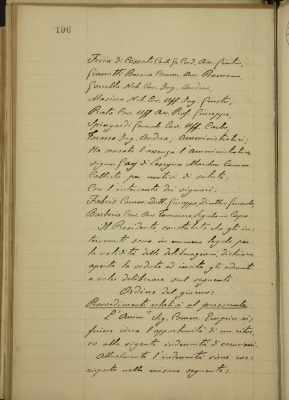 196
Feria di Cossato Conte Gr. Cord. Avv.
Gianotti Barone Comm. Avv. Romano,
Gonella Nob. Cav. Ing. Andrea,
Marina Nob. Cav. Uff. Ing.
Prato Cav. Uff. Avv. Prof. Giuseppe,
Spingardi Generale Cav. Uff. Carlo
Torasso Ing. Andrea, Amministratori;
Ha scusato l'assenza l'Amministratore
signor Gay di Comm.
Callisto per motivi di salute;
Con l'intervento dei signori:
Fabris Comm. Dott. Giuseppe, Direttore Generale,
Barberis Cav. Avv. Tommaso Segretario Capo.
Il Presidente, constatato che gli in-
tervenuti sono in numero legale per
la validità delle deliberazioni, dichiara
aperta la seduta ed invita gli adunati
a voler deliberare sul seguente
Ordine del giorno:
Provvedimenti relativi al personale
L'Amm.re Ing. Comm. ri-
ferisce circa l'opportunità di un ritoc-
co alla vigente indennità di caroviveri.
Attualmente l'indennità viene cor-
risposta nella misura seguente: